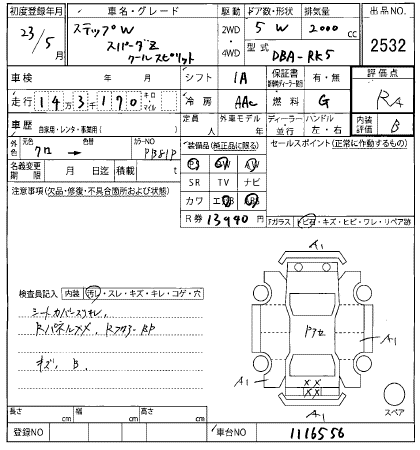 初度登録年月 車名・グレード 駆動 ドア数・形状 排気量 出品NO.
23/5月 ステップW 2WD 4WD 5 W 2000 cc 2532
スパーダZ 型式
クールスピリット DBA-RK5
車検 年 月 シフト IA 保証書 有・無 評価点
走行 14万3千170 キロ マイル 冷房 AAC 燃料 G RA
車歴 自家用・レンタ・事業用( ) 定員 人 外車モデル 年 ディーラー・並行 ハンドル 左・右 内装評価 B
外色 元色 クロ → 色替 カラーNO PB81P 装備品(純正品に限る) セールスポイント(正常に作動する)
PS PW AW
名義変更期限 月 日迄 積載 t SR TV ナビ
注意事項(欠品・修復・不具合箇所および状態) カワ エアB ABS
R券 13940 円 Fガラス トビ石・キズ・ヒビ・ワレ・リペア跡
A1
検査員記入 内装 汚レ・スレ・キズ・キレ・コゲ・穴
シートカバースリキレ
RパネルXX、Rフロアー BP
キズ、B
A1
A1
XX
XX
A1
スペア
長さ cm 幅 cm 高さ cm
登録NO 車台NO 1116556